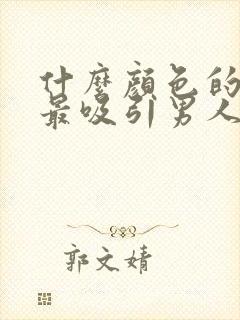 什麼顏色的
最吸引男人
郭文婧